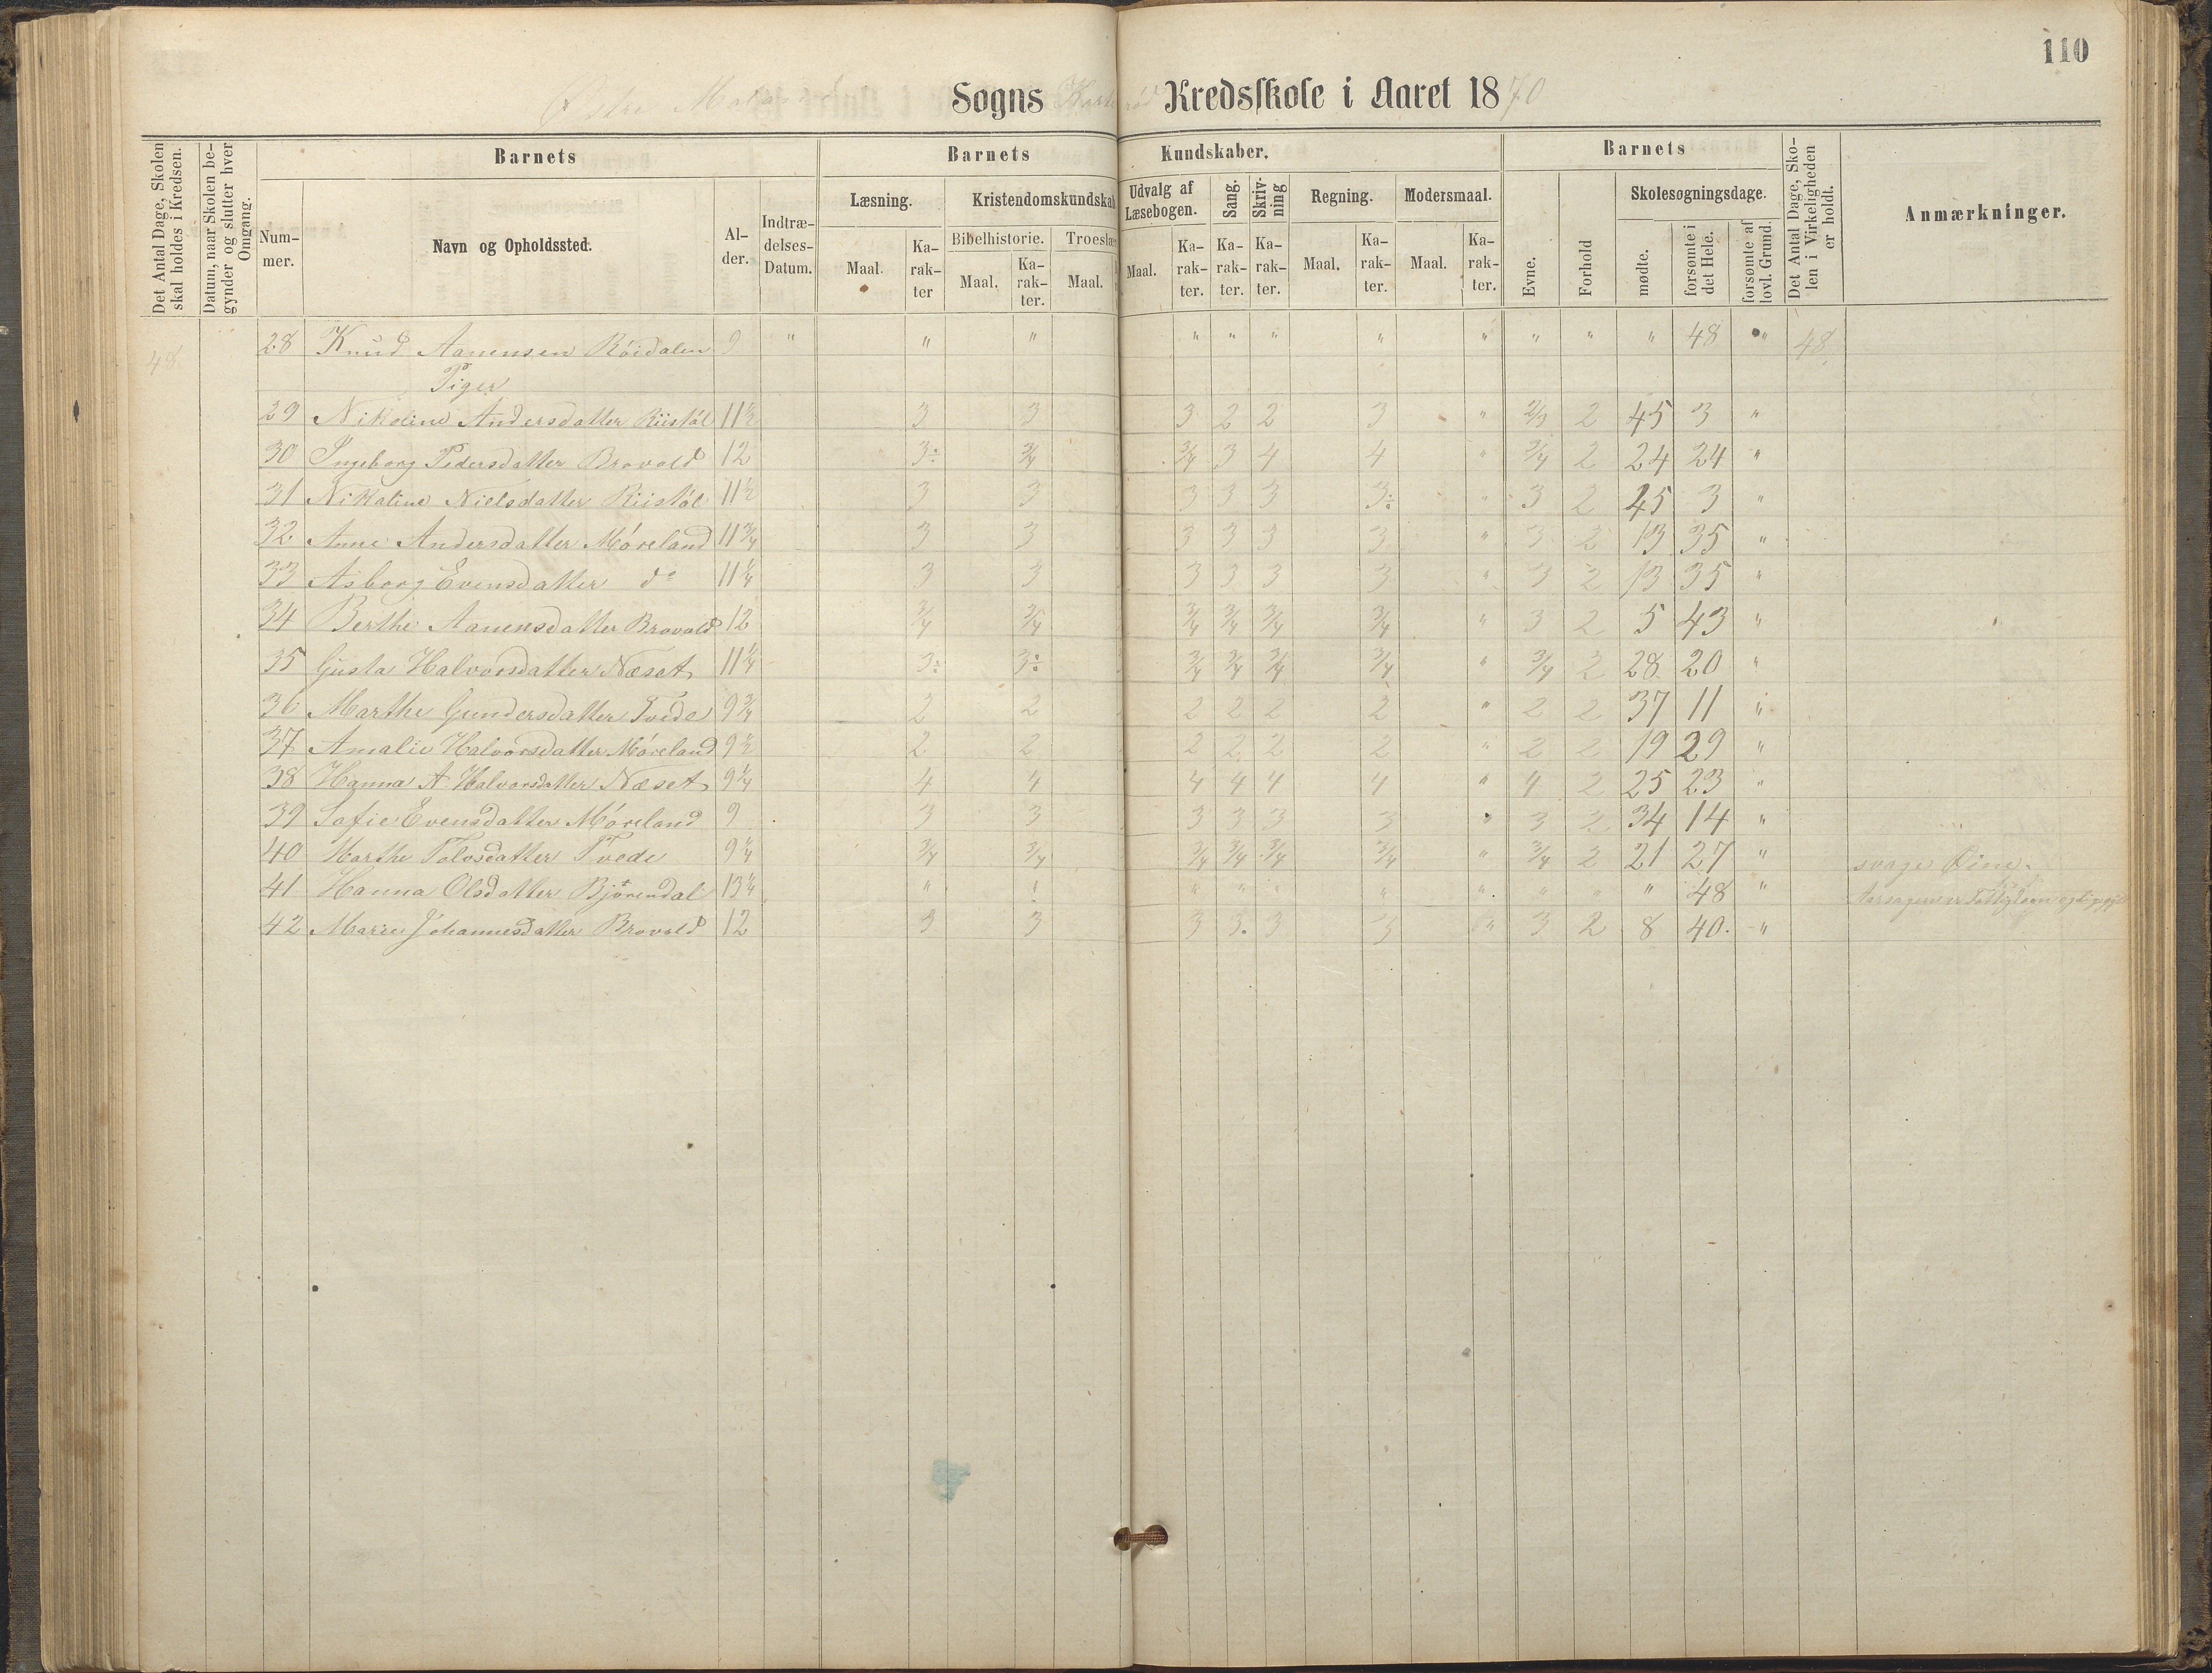 110
Østre Sogns Kredsskole i Aaret 1870
Det Antal Dage, Skolen skal holdes i Kredsen.
Datum, naar Skolen begynder og slutter hver Omgang.
Barnets
Nummer.
Navn og Opholdssted.
Alder.
Indtrædelses-Datum.
Barnets Kundskaber.
Læsning.
Maal.
Karakter
Kristendomskundskab
Bibelhistorie.
Maal.
Karakter.
Troeslær
Maal.
Udvalg af Læsebogen.
Maal.
Karakter.
Sang.
Karakter.
Skrivning
Karakter.
Regning.
Maal.
Karakter.
Modersmaal.
Maal.
Karakter.
Barnets
Evne.
Forhold
Skolesøgningsdage.
mødte.
forsømte i det Hele.
forsømte af lovl. Grund.
Det Antal Dage, Skolen i Virkeligheden er holdt.
Anmærkninger.
48 28 Knud Aanensen Röidalen 9 " " " " " " " " " " " 48 " 48
Piger
29 Nikoline Andersdatter Riisløl 11½ 3 3 3 2 2 3 " 2/3 2 45 3 "
30 Ingeborg Pedersdatter Brovold 12 3÷ 3/4 3/4 3 4 4 " 3/4 2 24 24 "
31 Nikaline Nielsdatter Riisløl 11½ 3 3 3 3 3 3÷ " 3 2 45 3 "
32 Anne Andersdatter Móreland 11¾ 3 3 3 3 3 3 " 3 2 13 35 "
33 Asborg Evensdatter do 11¼ 3 3 3 3 3 3 " 3 2 13 35 "
34 Berthe Aanensdatter Brovold 12 3/4 3/4 3/4 3/4 3/4 3/4 " 3 2 5 43 "
35 Gusta Halvorsdatter Næset 11¼ 3÷ 3÷ 3/4 3/4 3/4 3/4 " 3/4 2 28 20 "
36 Marthe Gundersdatter Tvede 9¾ 2 2 2 2 2 2 " 2 2 37 11 "
37 Amalie Halvorsdatter Móreland 9½ 2 2 2 2 2 2 " 2 2 19 29 "
38 Hanna A Halvorsdatter Næset 9¼ 4 4 4 4 4 4 " 4 2 25 23 "
39 Sofie Evensdatter Móreland 9 3 3 3 3 3 3 " 3 2 34 14 "
40 Marthe Tolvsdatter Tvede 9¼ 3/4 3/4 3/4 3/4 3/4 3/4 " 3/4 2 21 27 " svage Øine.
41 Hanna Olsdatter Bjørendal 13¼ " " " " " " " " " " 48 " Aarsagen er Fattigdom
42 Marie Johannesdatter Brovold 12 3 3 3 3 3 3 " 3 2 8 40 "